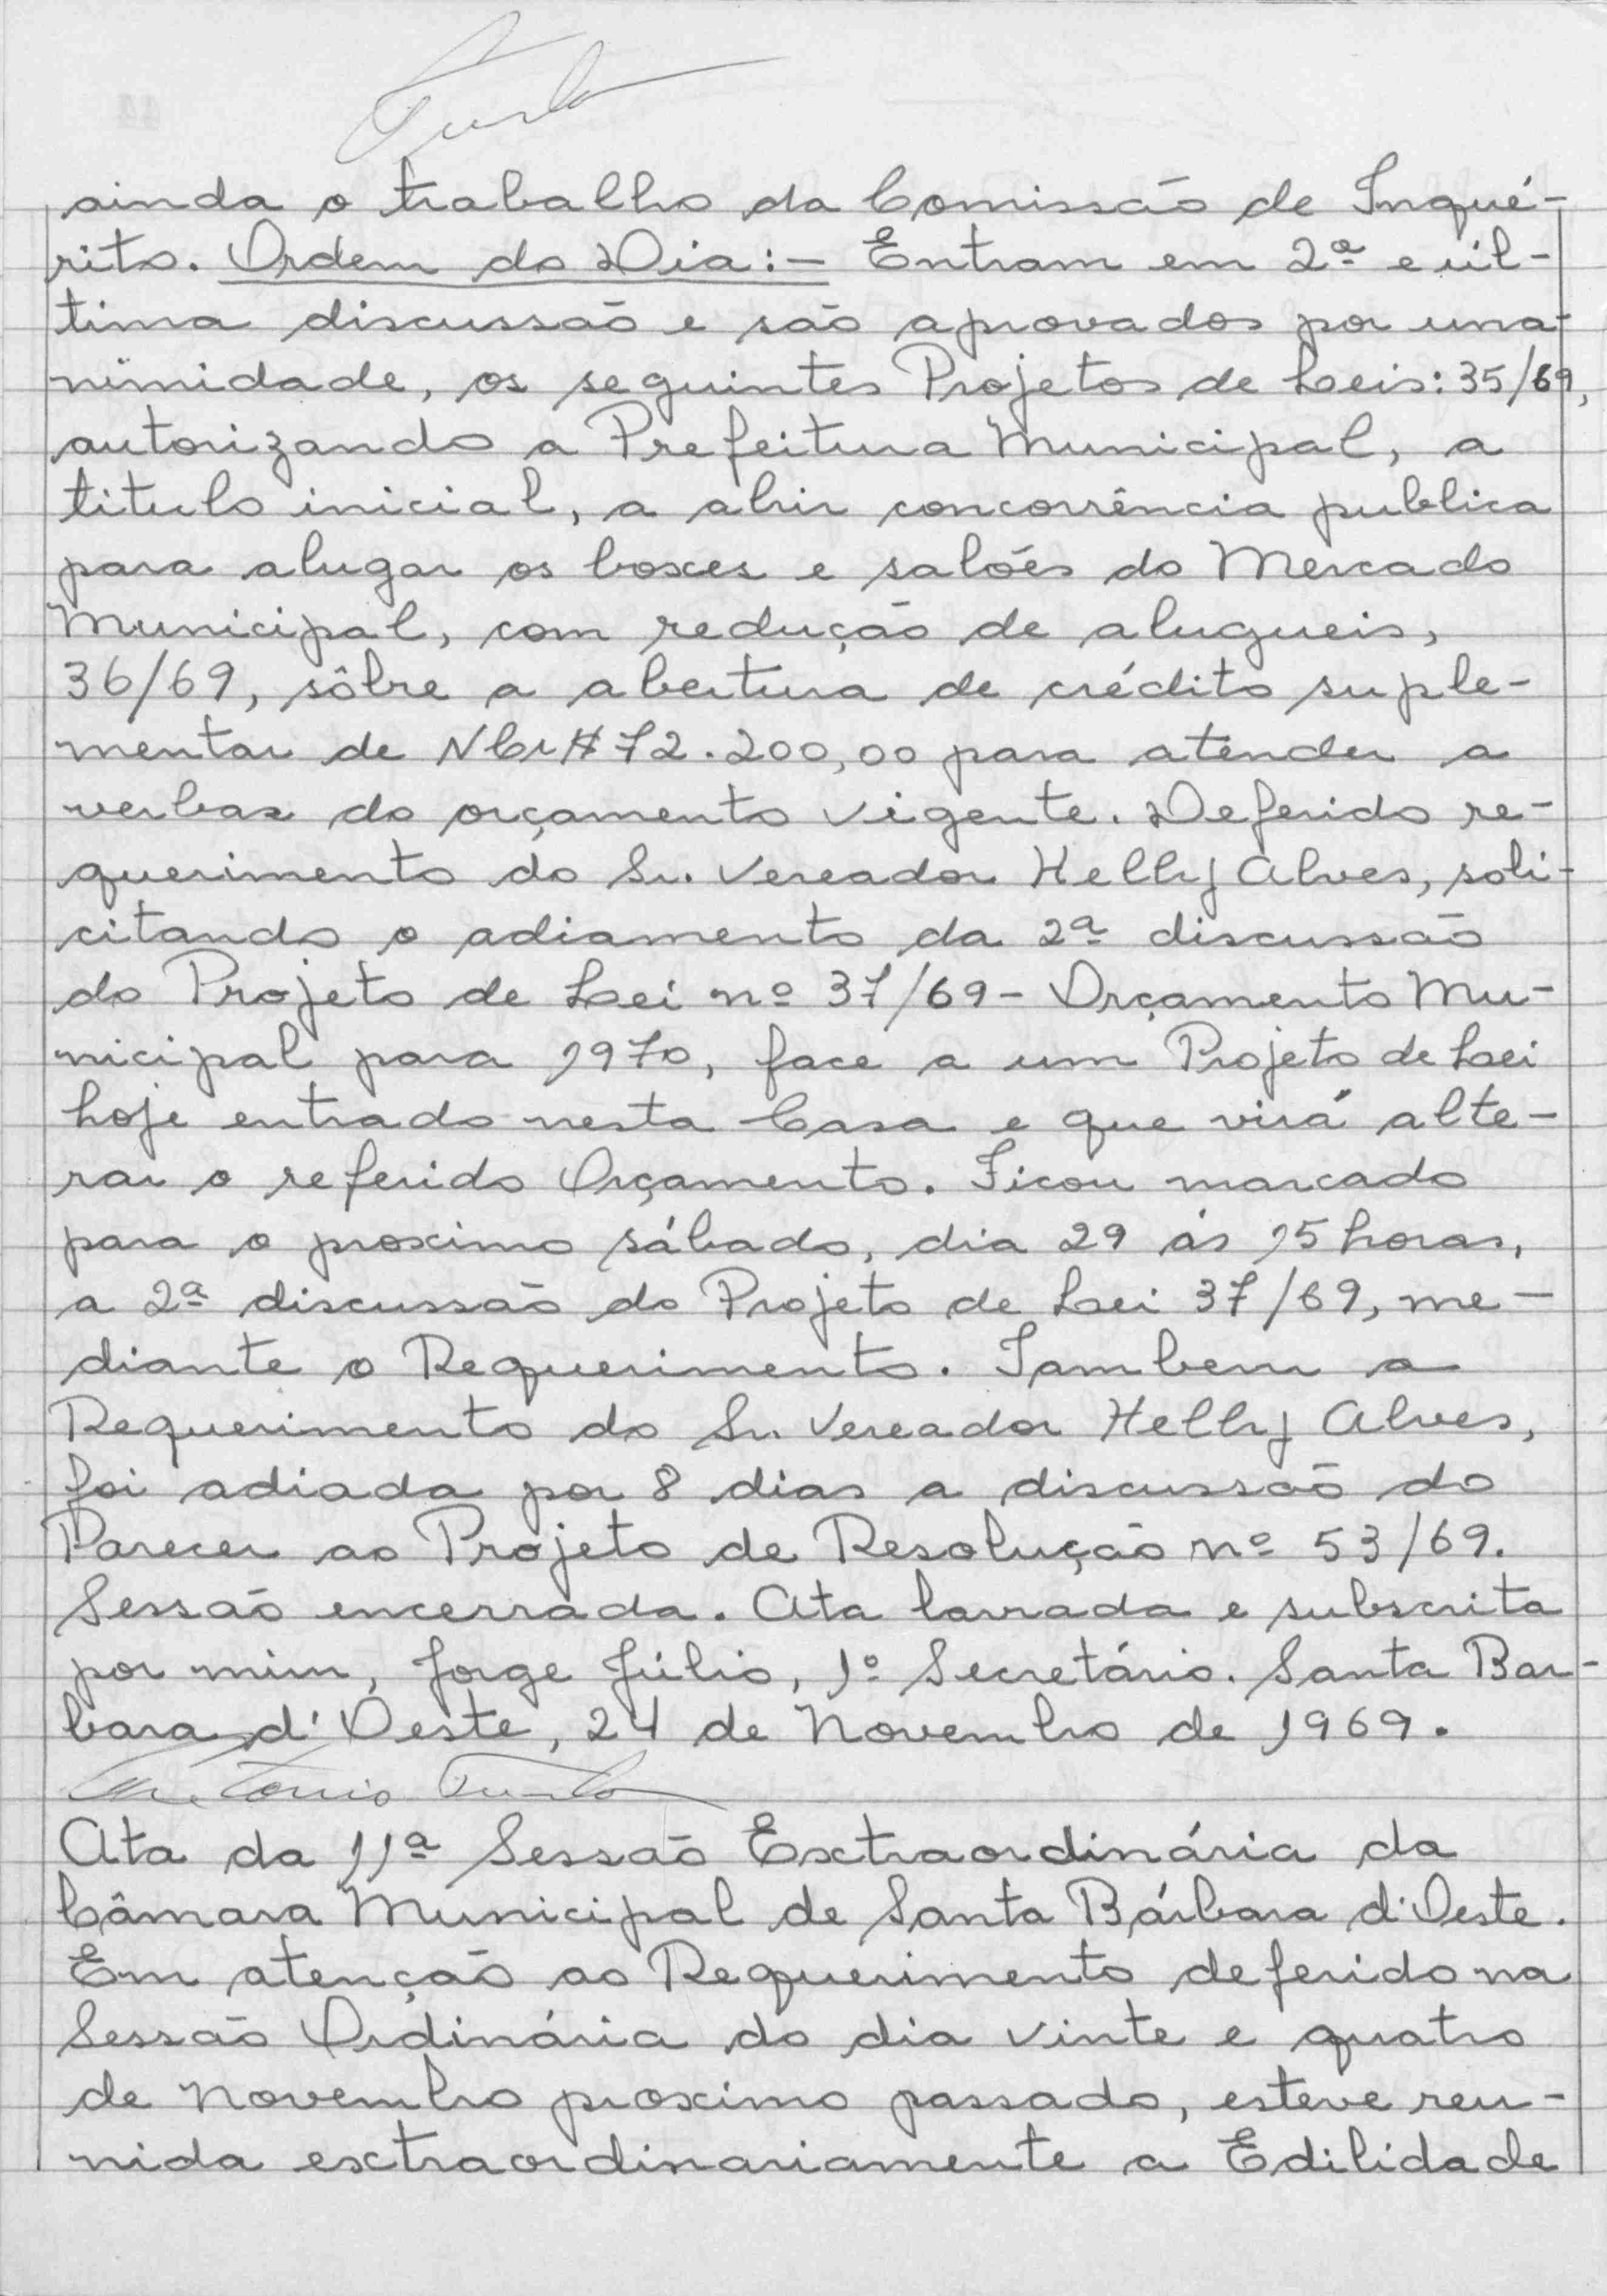 ainda o trabalho da Comissão de Inqué-
rito. Ordem do Dia:- Entram em 2ª e úl-
tima discussão e são aprovados por una-
nimidade, os seguintes Projetos de Leis: 35/69,
autorizando a Prefeitura Municipal, a
titulo inicial, a abrir concorrência publica
para alugar os boxes e salões do Mercado
Municipal, com redução de alugueis,
36/69, sôbre a abertura de crédito suple-
mentar de NCr$ 72.200,00 para atender a
verbas do orçamento vigente. Deferido re-
querimento do Sr. Vereador Helly Alves, soli-
citando o adiamento da 2ª discussão
do Projeto de Lei nº 37/69 - Orçamento Mu-
nicipal para 1970, face a um Projeto de Lei
hoje entrado nesta Casa e que virá alte-
rar o referido Orçamento. Ficou marcado
para o proximo sábado, dia 29 ás 15 horas,
a 2ª discussão do Projeto de Lei 37/69, me-
diante o Requerimento. Tambem a
Requerimento do Sr. Vereador Helly Alves,
foi adiada por 8 dias a discussão do
Parecer ao Projeto de Resolução nº 53/69.
Sessão encerrada. Ata lavrada e subscrita
por mim, Jorge Júlio, 1º Secretário. Santa Bar-
bara d'Oeste, 24 de Novembro de 1969.
Antonio
Ata da 11ª Sessão Extraordinária da
Câmara Municipal de Santa Bárbara d'Oeste.
Em atenção ao Requerimento deferido na
Sessão Ordinária do dia vinte e quatro
de Novembro proximo passado, esteve reu-
nida extraordinariamente a Edilidade